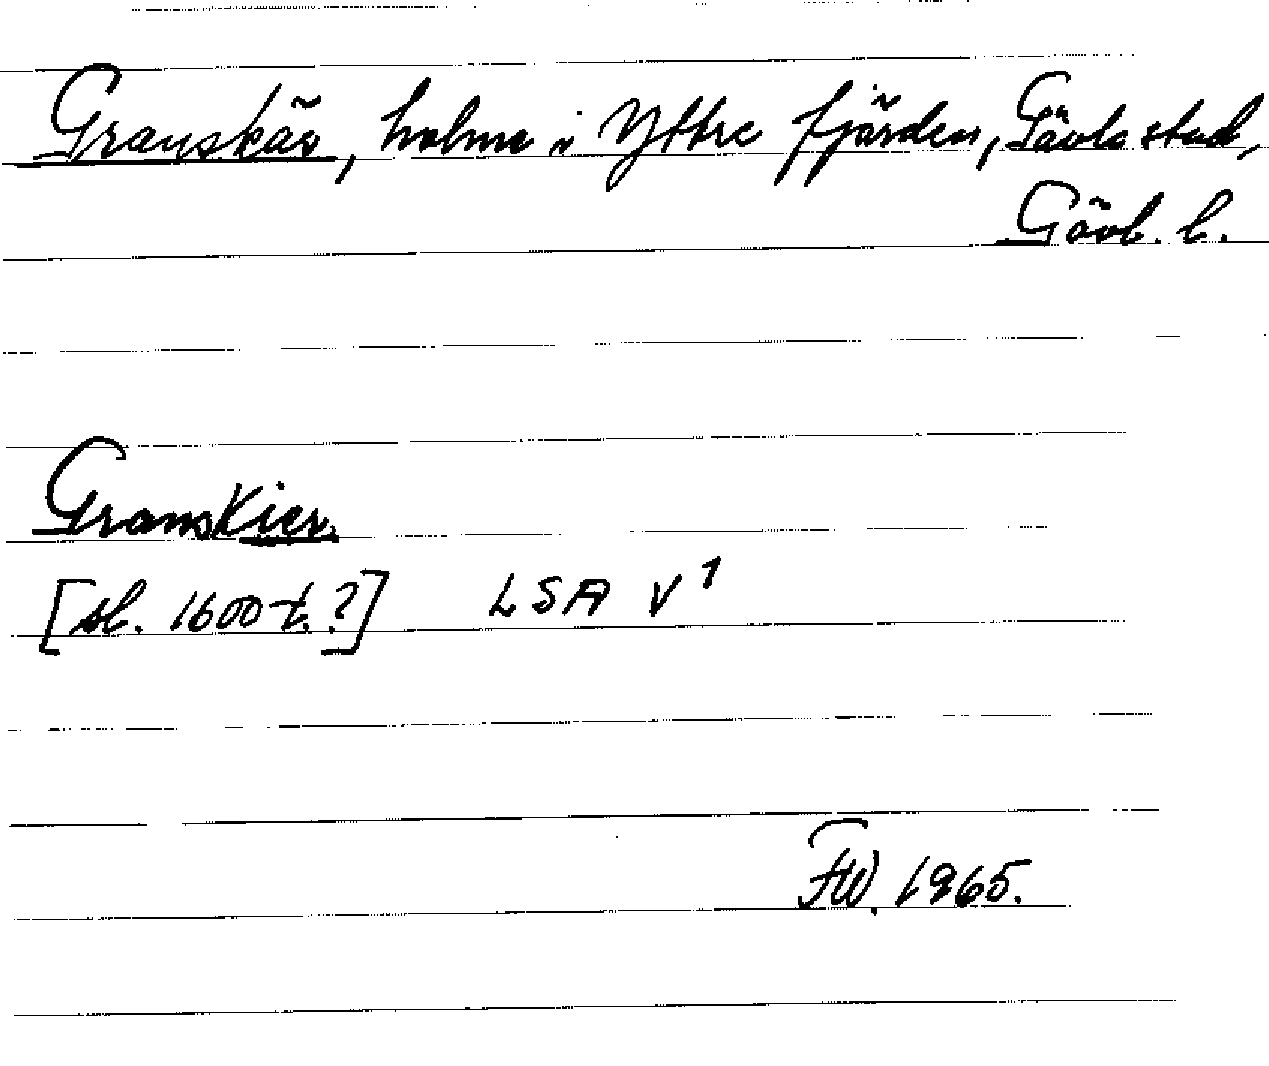 Granskär, holme i Yttre fjärden, Gävle stad,
Gävl. l.
Granskier.
[sl. 1600-t.?] LSA V 1
FW. 1965.